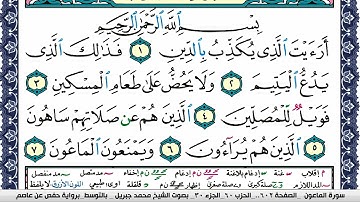 بِسْمِ ٱللَّهِ ٱلرَّحْمَٰنِ ٱلرَّحِيمِ
أَرَءَيْتَ ٱلَّذِى يُكَذِّبُ بِٱلدِّينِ ١ فَذَٰلِكَ ٱلَّذِى
يَدُعُّ ٱلْيَتِيمَ ٢ وَلَا يَحُضُّ عَلَىٰ طَعَامِ ٱلْمِسْكِينِ ٣
فَوَيْلٌ لِّلْمُصَلِّينَ ٤ ٱلَّذِينَ هُمْ عَن صَلَاتِهِمْ سَاهُونَ ٥
ٱلَّذِينَ هُمْ يُرَآءُونَ ٦ وَيَمْنَعُونَ ٱلْمَاعُونَ ٧
سورة الماعون الصفحة ٦٠٢ الحزب ٦٠ الجزء ٣٠ بصوت الشيخ محمد جبريل بالتوسط برواية حفص عن عاصم